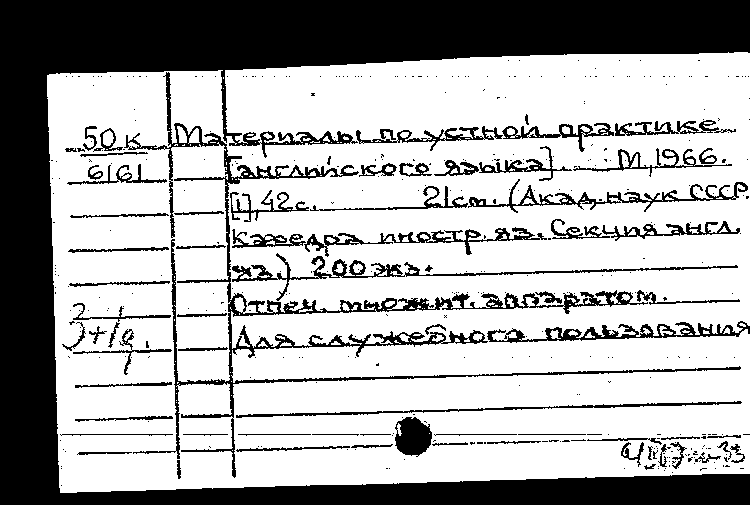 50к Материалы по устной практике
6161 [английского языка]. М, 1966.
[1], 42с. 21см. (Акад. наук СССР.
Кафедра иностр. яз. Секция англ.
яз.) 200 экз.
Отпеч. множит. аппаратом.
Для служебного пользования